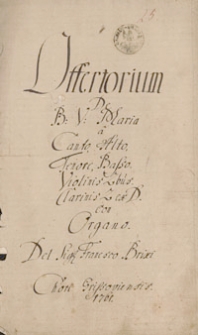 Offertorium
De
B: V: Maria
â
Canto, Alto,
Tenore, Basso.
Violinis 2bus
Clarinis 2 ex D.
con
Organo.
Del Sigl Francesco Brixi
Chori
1761.